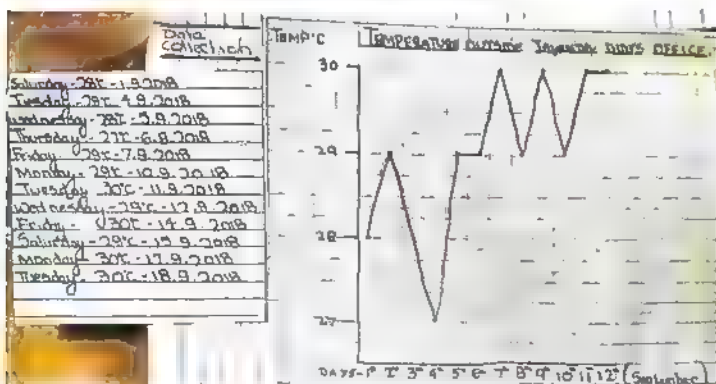 Data
Collection
Saturday - 28°C - 1.9.2018
Tuesday - 29°C - 4.9.2018
Wednesday - 28°C - 5.9.2018
Thursday - 27°C - 6.9.2018
Friday - 29°C - 7.9.2018
Monday - 29°C - 10.9.2018
Tuesday 30°C - 11.9.2018
Wednesday - 29°C - 12.9.2018
Friday - 30°C - 14.9.2018
Saturday - 29°C - 15.9.2018
Monday - 30°C - 17.9.2018
Tuesday - 30°C - 18.9.2018
TEMP°C
TEMPERATURE OUTSIDE OFFICE
30
29
28
27
DAYS - 1 2 3 4 5 6 7 8 9 10 11 12 (September)